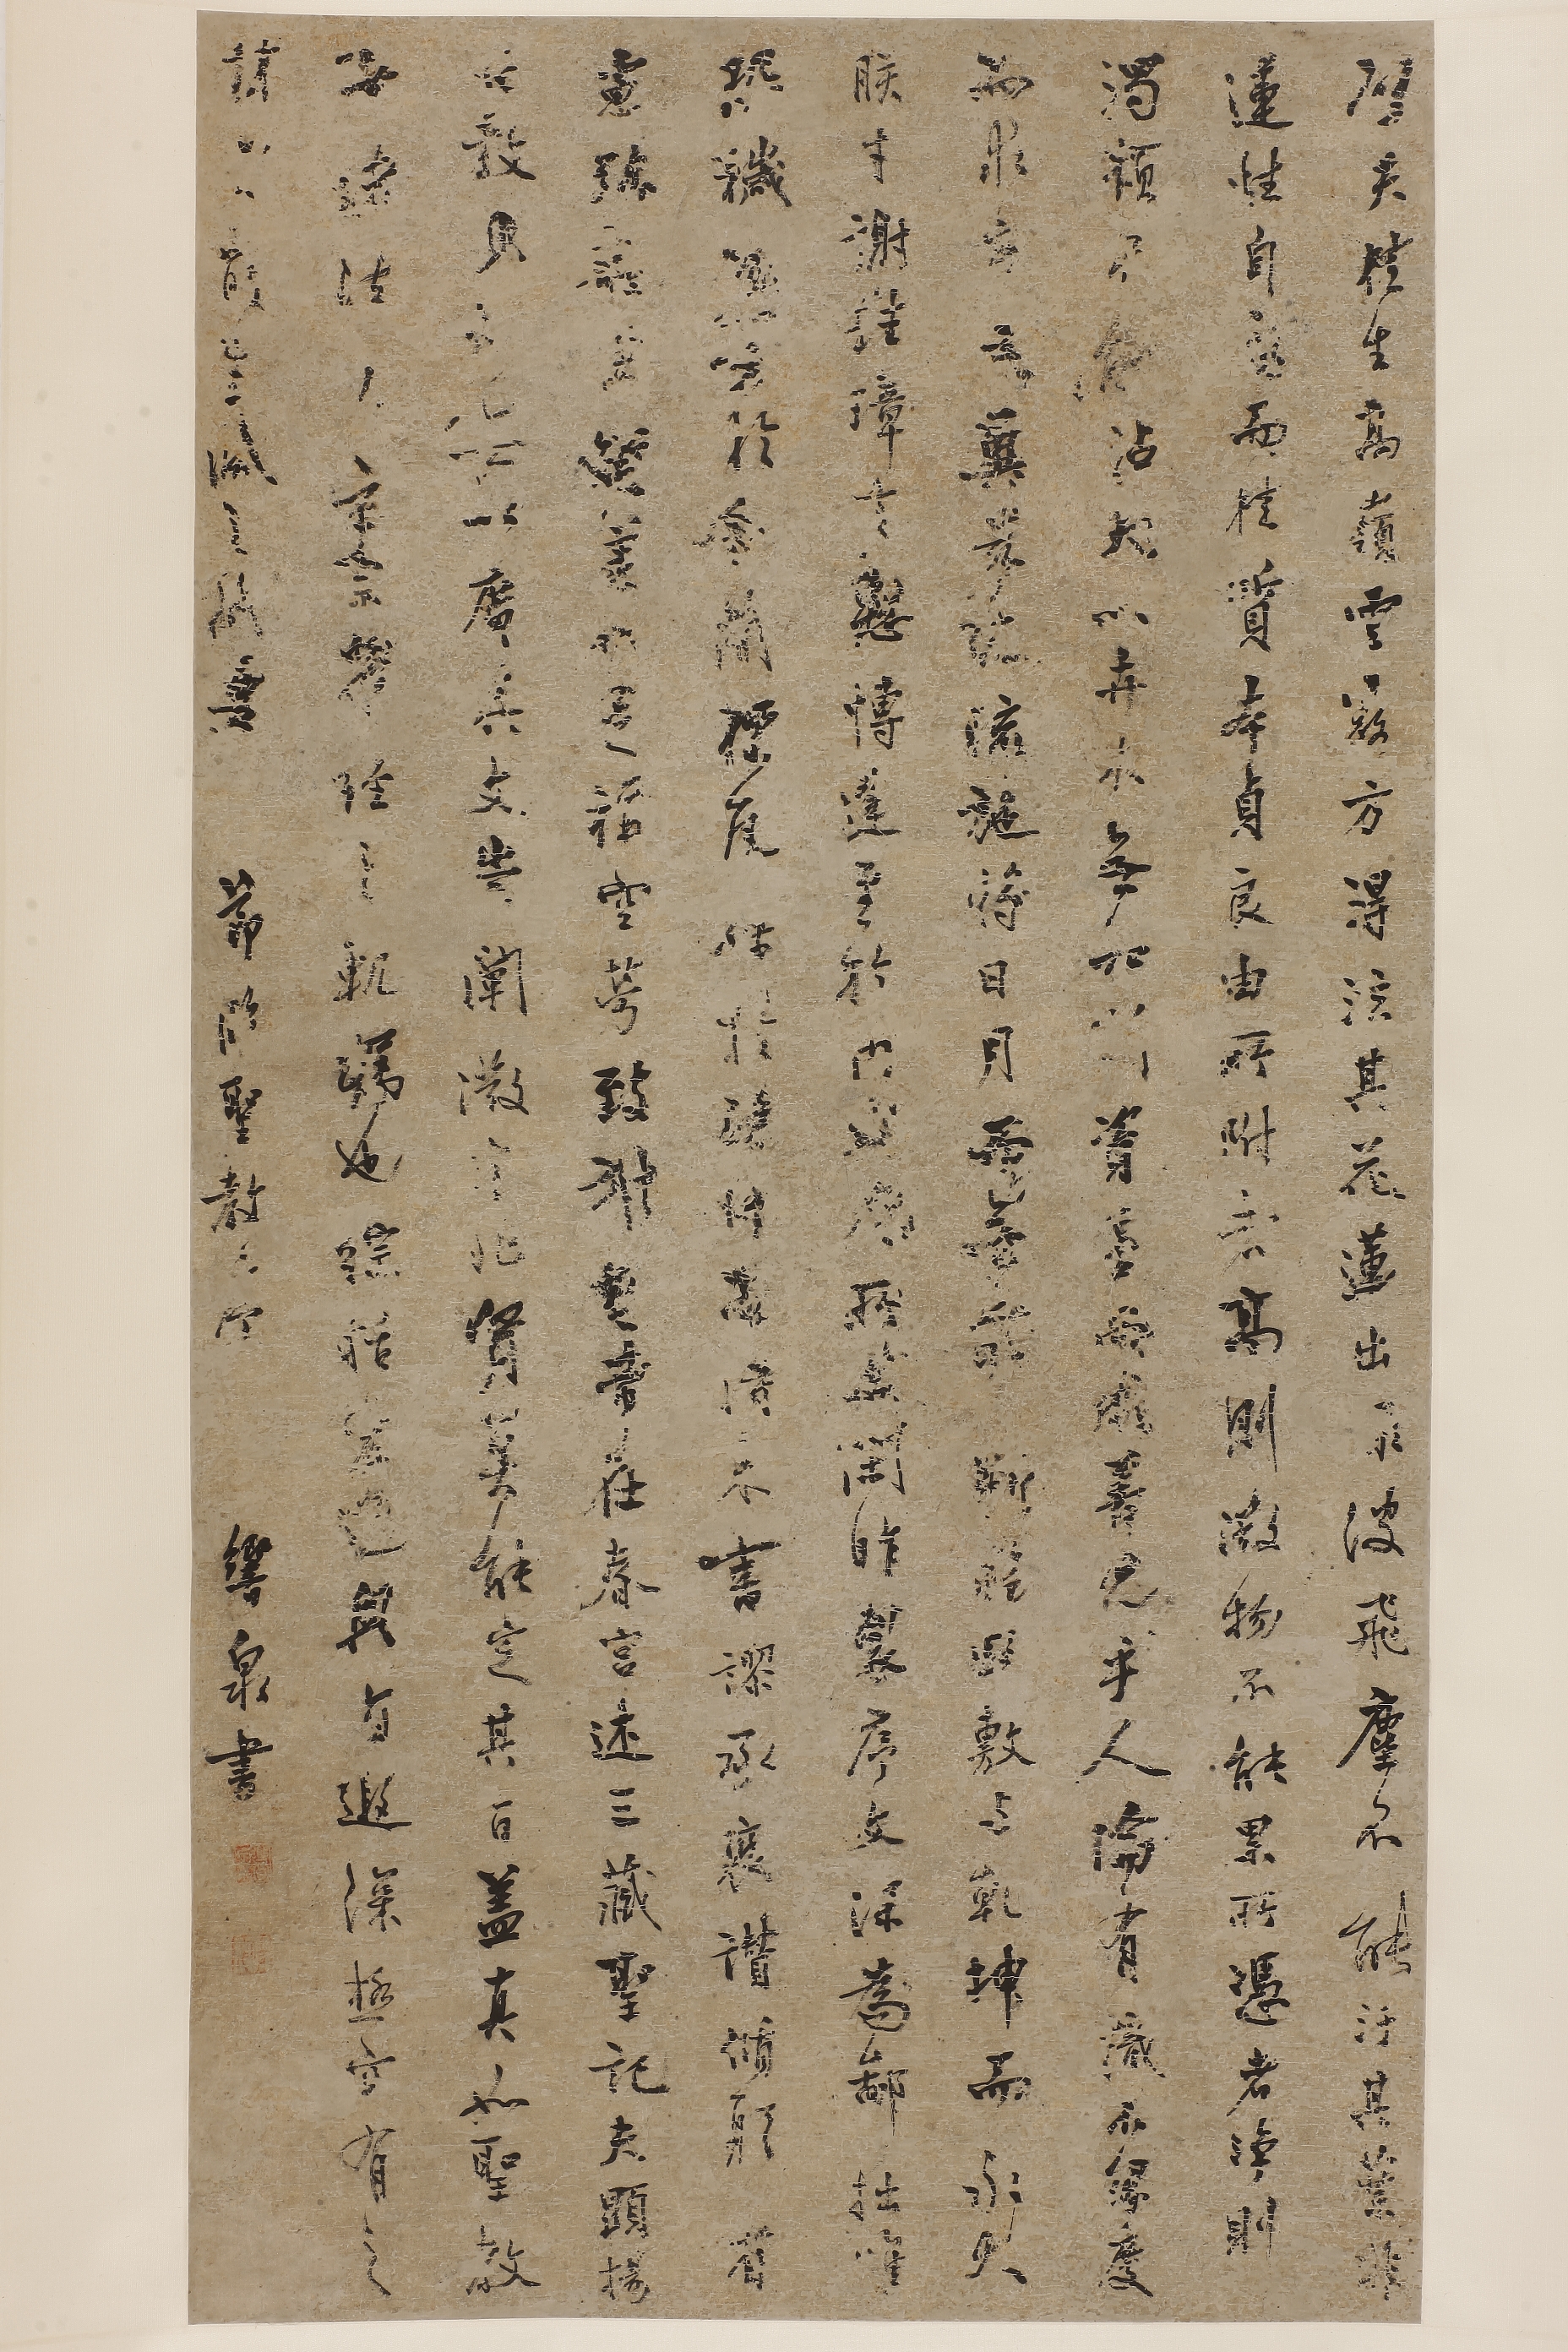 譬夫桂生高嶺雲露方得泫其花蓮出淥波飛塵不能汙其葉非
蓮性自潔而桂質本貞良由所附者高則微物不能累所憑者淨則
濁類不能沾夫以卉木無知猶資善而成善況乎人倫有識不緣慶
而求慶方冀茲經流施將日月而無窮斯福遐敷与乾坤而永大
朕才謝珪璋言慙博達至於內典尤所未閑昨製序文深為鄙拙唯
恐穢翰墨於金簡標瓦礫於珠林忽得來書謬承褒讚循躬省
慮弥益厚顏善不足稱空勞致謝皇帝在春宮述三藏聖記夫顯揚
正教非智無以廣其文崇闡微言非賢莫能定其旨蓋真如聖教
者諸法之玄宗眾經之軌躅也綜括宏遠奧旨遐深極空有之
精微體生滅之機要 節臨聖教序 響泉書